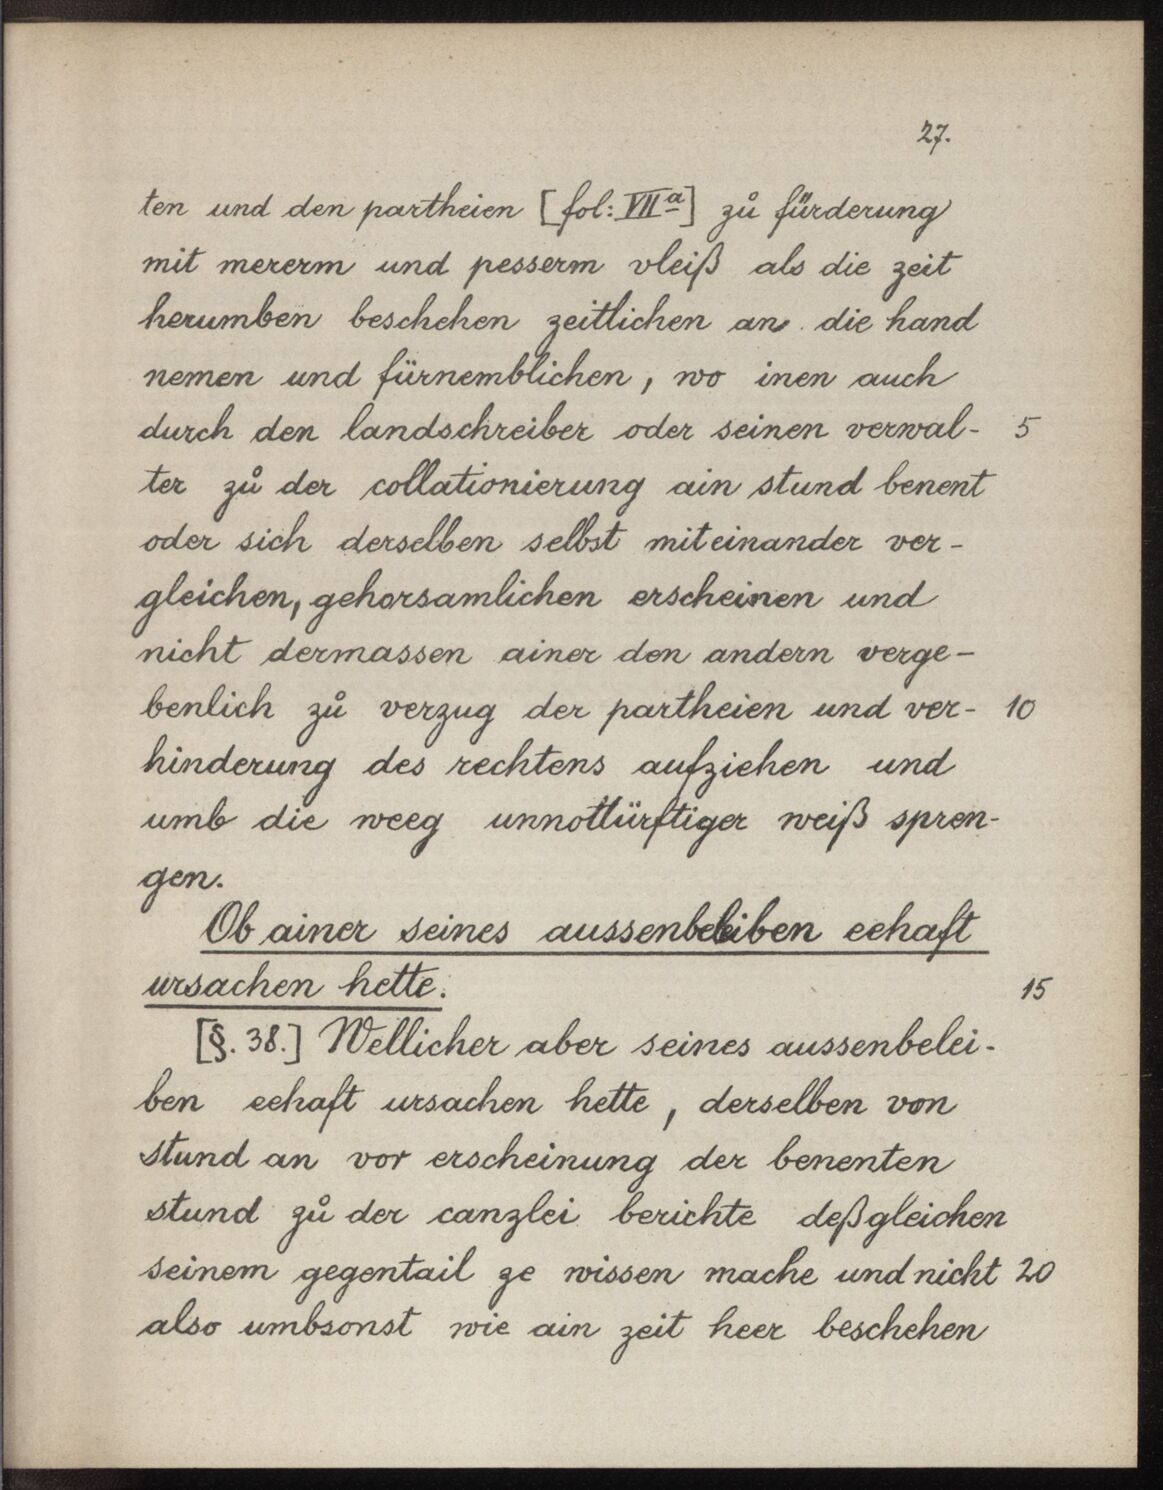 27.
ten und den partheien [fol: VIIª] zů fürderung
mit mererm und pesserm vleiß als die zeit
herumben beschehen zeitlichen an die hand
nemen und fürnemblichen, wo inen auch
durch den landschreiber oder seinen verwal- 5
ter zů der collationierung ain stund benent
oder sich derselben selbst miteinander ver-
gleichen, gehorsamlichen erscheinen und
nicht dermassen ainer den andern verge-
benlich zů verzug der partheien und ver- 10
hinderung des rechtens aufziehen und
umb die weeg unnottürftiger weiß spren-
gen.
Ob ainer seines aussenbeleiben eehaft
ursachen hette. 15
[§. 38.] Wellicher aber seines aussenbelei-
ben eehaft ursachen hette, derselben von
stund an vor erscheinung der benenten
stund zů der canzlei berichte deßgleichen
seinem gegentail ze wissen mache und nicht 20
also umbsonst wie ain zeit heer beschehen